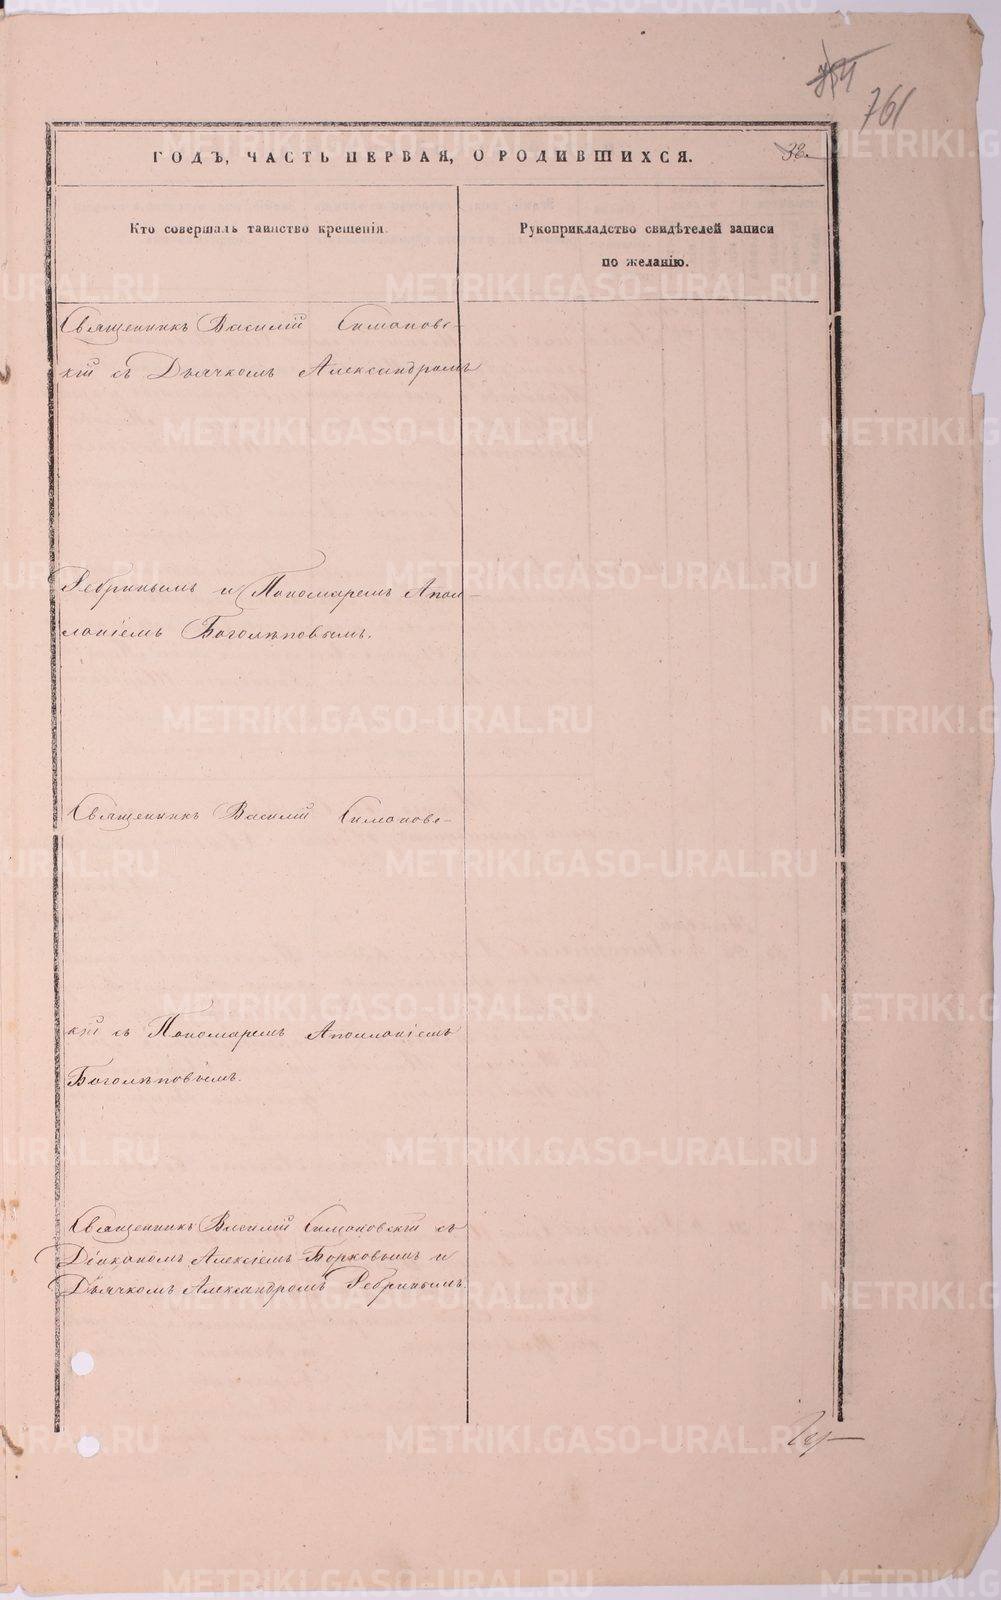 761
ГОДЪ, ЧАСТЬ ПЕРВАЯ, О РОДИВШИХСЯ. 32.
Кто совершалъ таинство крещенія.
Рукоприкладство свидѣтелей записи
по желанію.
Священникъ Василій Симановс-
кій съ Дьячкомъ Александромъ
Ребринымъ и Пономаремъ Апол-
лоніемъ Боголѣповымъ.
Священникъ Василій Симановс-
кій съ Пономаремъ Аполлоніемъ
Боголѣповымъ.
Священникъ Василій Симановскій съ
Діакономъ Алексіемъ Борковымъ и
Дьячкомъ Александромъ Ребринымъ.
METRIKI.GASO-URAL.RU